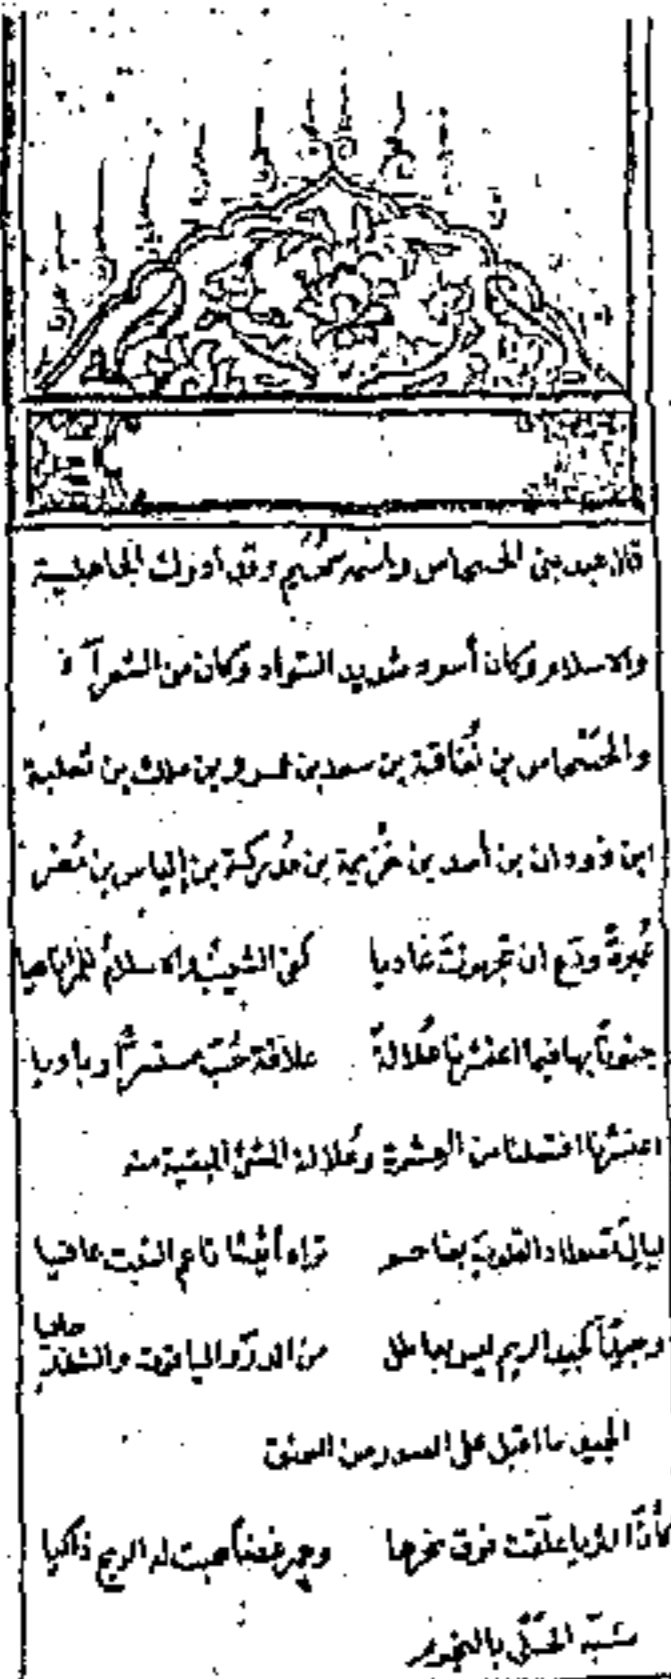 قال عبد بنى الحسحاس واسمه سُحَيْم وقد أدرك الجاهلية
والاسلام وكان أسود شديد السواد وكان من الشعرآء
والحَسْحاس بن نُفَاثة بن سعد بن عمرو بن ملك بن ثعلبة
ابن دودان بن أسد بن خُزيمة بن مُدركة بن إلياس بن مُضر
عُميرةَ ودّع ان تجهزتَ غاديا كفى الشيبُ والاسلامُ للمرء ناهيا
جنوناً بها فيما اعتشرنا عُلالةً علاقةَ حُبّ مستسرّاً وباديا
اعتشرنا افتعلنا من العشرة وعُلالة الشئ البقية منه
لياليَ تصطاد القلوبَ بفاحم تراه أثيثا ناعم النبت عافيا
وجيدٍ كجيد الريم ليس بعاطل من الدرّ والياقوت والشذر حاليا
الجيد ما اقبل على الصدر من العنق
كأنّ الثريا علّقت فوق نحرها وجمر غضاً هبت له الريح ذاكيا
شبّه الحَلْى بالنجوم